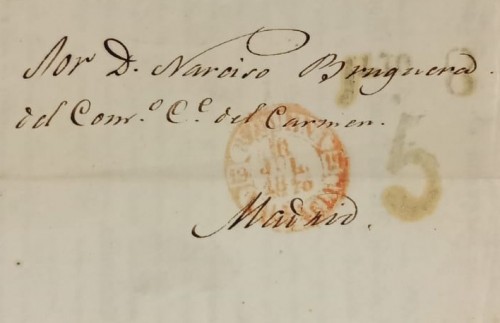 Sor D. Narciso Bruguera
del Com.o C.e del Carmen.
Madrid.
5